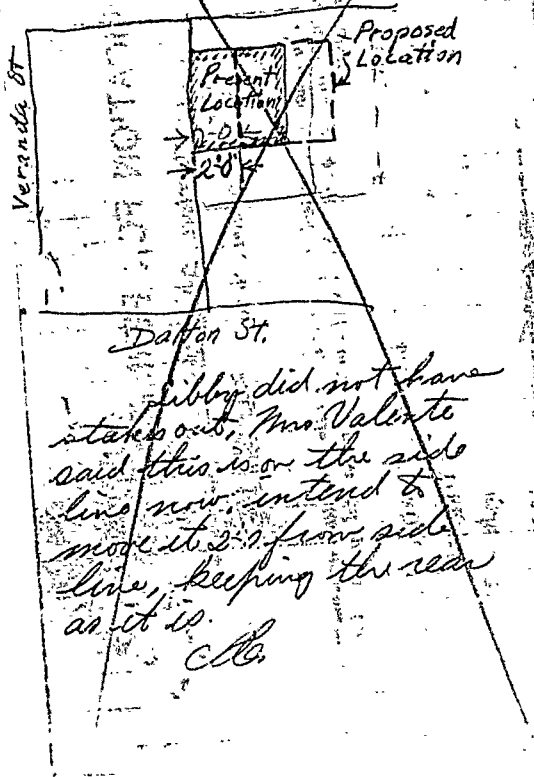 Veranda St
Proposed
Location
Present
Location
2'-0"
Dalton St.
Libby did not have
stakes out, Mrs Valente
said this is on the side
line now, intend to
move it 2's from side
line, keeping the rear
as it is.